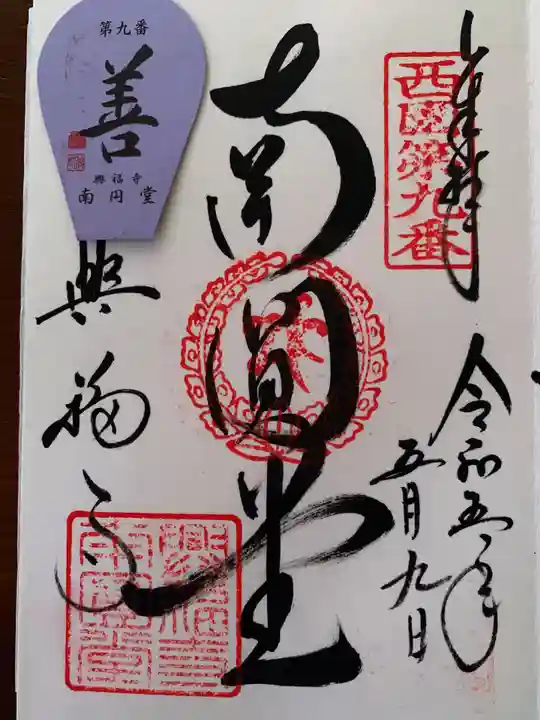 奉拝
西国第九番
令和五年
五月九日
南圓堂
興福寺
興福寺
南圓堂
第九番
善
興福寺
南円堂